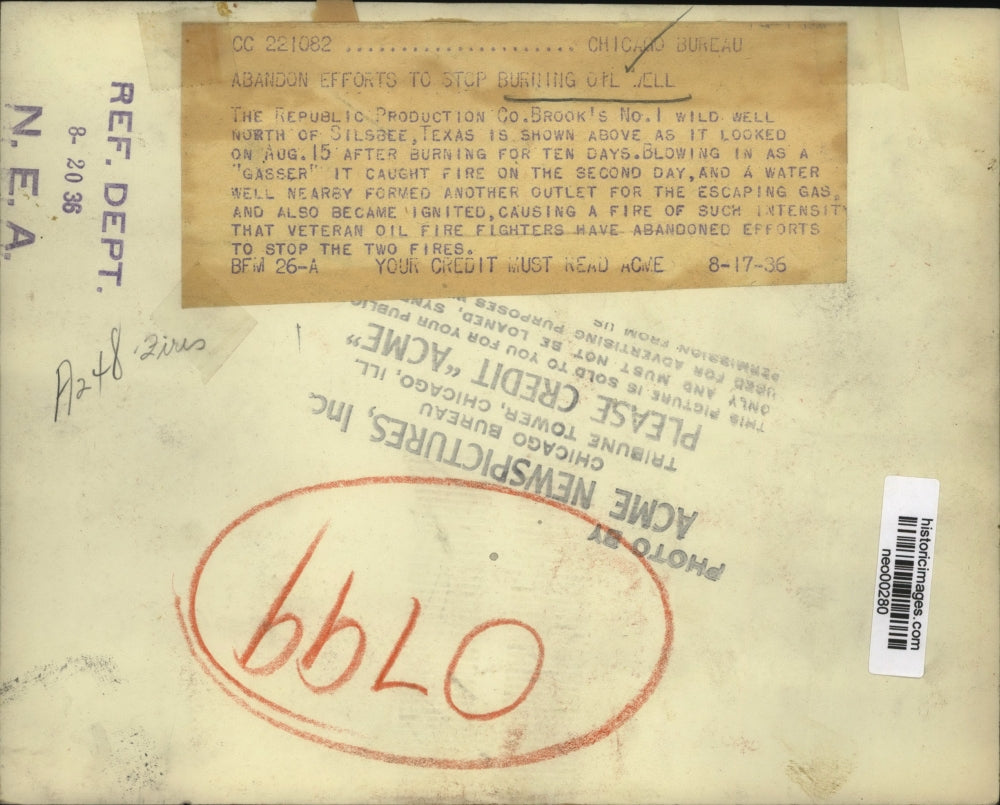 CC 221082 ........................ CHICAGO BUREAU
ABANDON EFFORTS TO STOP BURNING OIL WELL
THE REPUBLIC PRODUCTION CO.BROOK'S NO.1 WILD WELL
NORTH OF SILSBEE,TEXAS IS SHOWN ABOVE AS IT LOOKED
ON AUG.15 AFTER BURNING FOR TEN DAYS.BLOWING IN AS A
"GASSER" IT CAUGHT FIRE ON THE SECOND DAY,AND A WATER
WELL NEARBY FORMED ANOTHER OUTLET FOR THE ESCAPING GAS,
AND ALSO BECAME IGNITED,CAUSING A FIRE OF SUCH INTENSITY
THAT VETERAN OIL FIRE FIGHTERS HAVE ABANDONED EFFORTS
TO STOP THE TWO FIRES.
BFM 26-A YOUR CREDIT MUST READ ACME 8-17-36
REF. DEPT.
8- 20 36
N. E. A.
A248 Fires
PHOTO BY
ACME NEWSPICTURES, Inc.
CHICAGO BUREAU
TRIBUNE TOWER, CHICAGO, ILL.
PLEASE CREDIT "ACME"
THIS PICTURE IS SOLD TO YOU FOR YOUR PUBLIC
ONLY AND MUST NOT BE LOANED, SYND
USED FOR ADVERTISING PURPOSES W
PERMISSION FROM US
0799
historicimages.com
neo00280